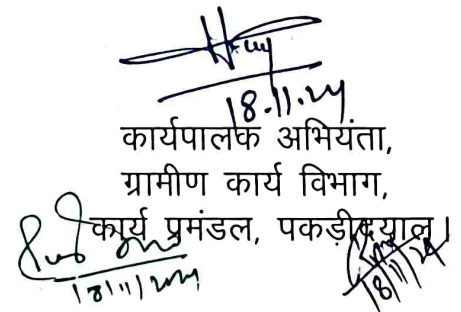 18.11.24
कार्यपालक अभियंता,
ग्रामीण कार्य विभाग,
कार्य प्रमंडल, पकड़ीदयाल।
18/11/2024 18/11/24